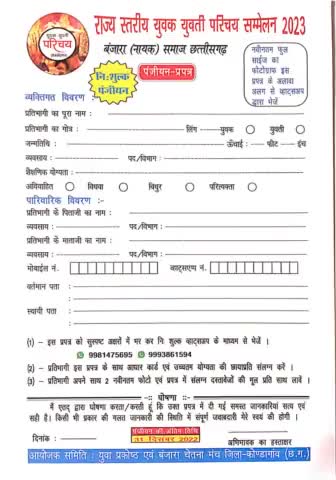 युवक युवती
परिचय
सम्मेलन
राज्य स्तरीय युवक युवती परिचय सम्मेलन 2023
बंजारा (नायक) समाज छत्तीसगढ़
नि:शुल्क
पंजीयन
पंजीयन-प्रपत्र
नवीनतम फुल
साईज का
फोटोग्राफ इस
प्रपत्र के अलावा
अलग से व्हाट्सअप
द्वारा भेजें
व्यक्तिगत विवरण :-
प्रतिभागी का पूरा नाम :
प्रतिभागी का गोत्र : लिंग युवक युवती
जन्मतिथि : ऊँचाई : फीट इंच
व्यवसाय : पद/विभाग :
शैक्षणिक योग्यता :
अविवाहित विधवा विधुर परित्यक्ता
पारिवारिक विवरण :-
प्रतिभागी के पिताजी का नाम :
व्यवसाय : पद/विभाग :
प्रतिभागी के माताजी का नाम :
व्यवसाय : पद/विभाग :
मोबाईल नं. व्हाट्सएप्प नं.
वर्तमान पता :
स्थायी पता :
(1) - इस प्रपत्र को सुस्पष्ट अक्षरों में भर कर नि: शुल्क व्हाट्सअप के माध्यम से भेजें ।
9981475695 9993861594
(2) - प्रतिभागी इस प्रपत्र के साथ आधार कार्ड एवं उच्चतम योग्यता की छायाप्रति संलग्न करें ।
(3) - प्रतिभागी अपने साथ 2 नवीनतम फोटो एवं प्रपत्र में संलग्न दस्तावेजों की मूल प्रति साथ लावें ।
-:: घोषणा ::-
मैं एतद् द्वारा घोषणा करता/करती हूं कि उक्त प्रपत्र में दी गई समस्त जानकारियां सत्य एवं
सही है। किसी भी प्रकार की गलत जानकारी की स्थिति में संपूर्ण जवाबदारी मेरे स्वयं की होगी ।
पंजीयन की अंतिम तिथि
31 दिसंबर 2022
दिनांक : अभिभावक का हस्ताक्षर
आयोजक समिति : युवा प्रकोष्ठ एवं बंजारा चेतना मंच जिला-कोण्डागाँव (छ.ग.)